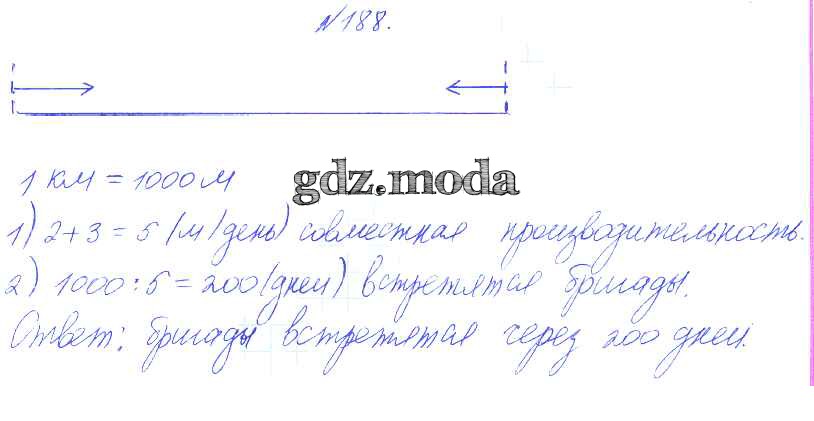 №188.
1 км = 1000 м
gdz.moda
1) 2+3 = 5 (м/день) совместная производительность.
2) 1000:5 = 200 (дней) встретятся бригады.
Ответ: бригады встретятся через 200 дней.